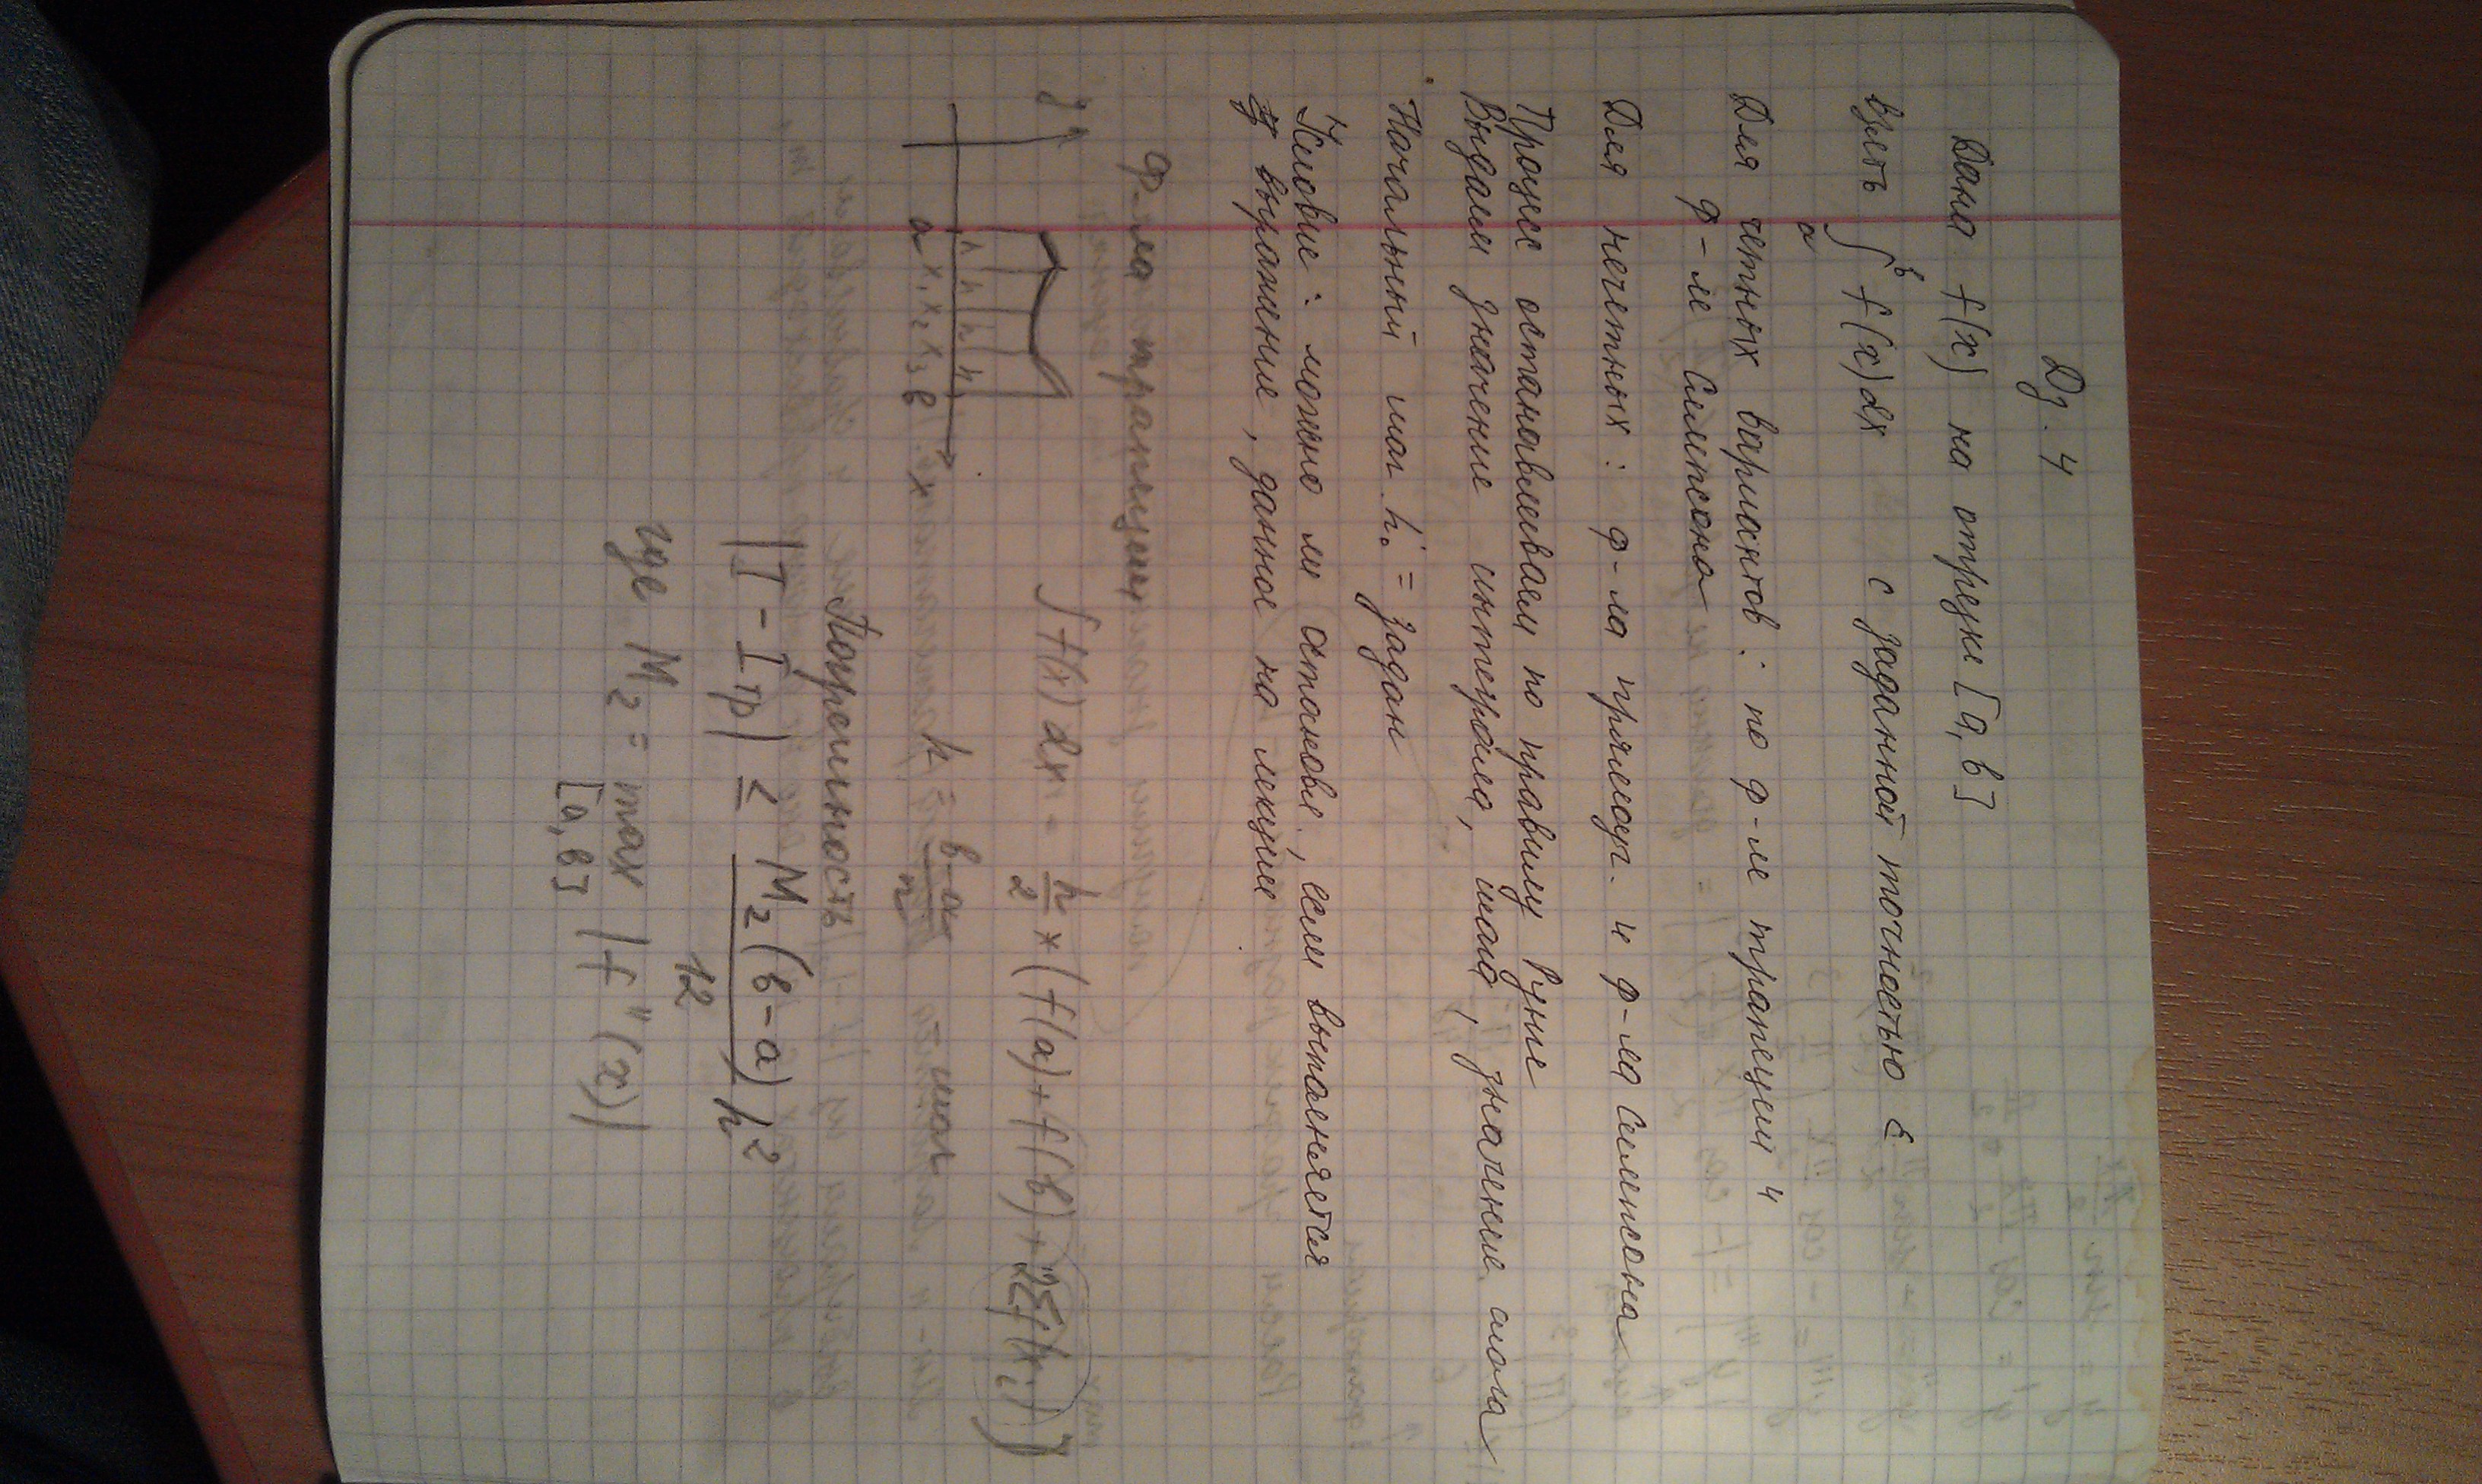 Дз. 4
Дана f(x) на отрезке [a, b]
Вред ∫ₐᵇ f(x)dx с заданной точностью ε
Для четных вариантов: по ф-ле трапеции и
ф-ле Симпсона
Для нечетных: ф-ла прямоуг. и ф-ла Симпсона
Процесс останавливаем по правилу Рунге
Выдаем значение интеграла, шага, значение
Начальный шаг h₀ = задан
Условие: можно ли остановке, если выполняется
выражение, данное на лекции
Ф-ла трапеции
y
∫f(x)dx = h/2 * (f(a)+f(b)+2Σf(xᵢ))
h h h h
a x₁ x₂ x₃ b x
h = b-a/n - шаг
Погрешность
|I - Iтр| ≤ M₂(b-a)h²/12
где M₂ = max |f''(x)|
[a, b]